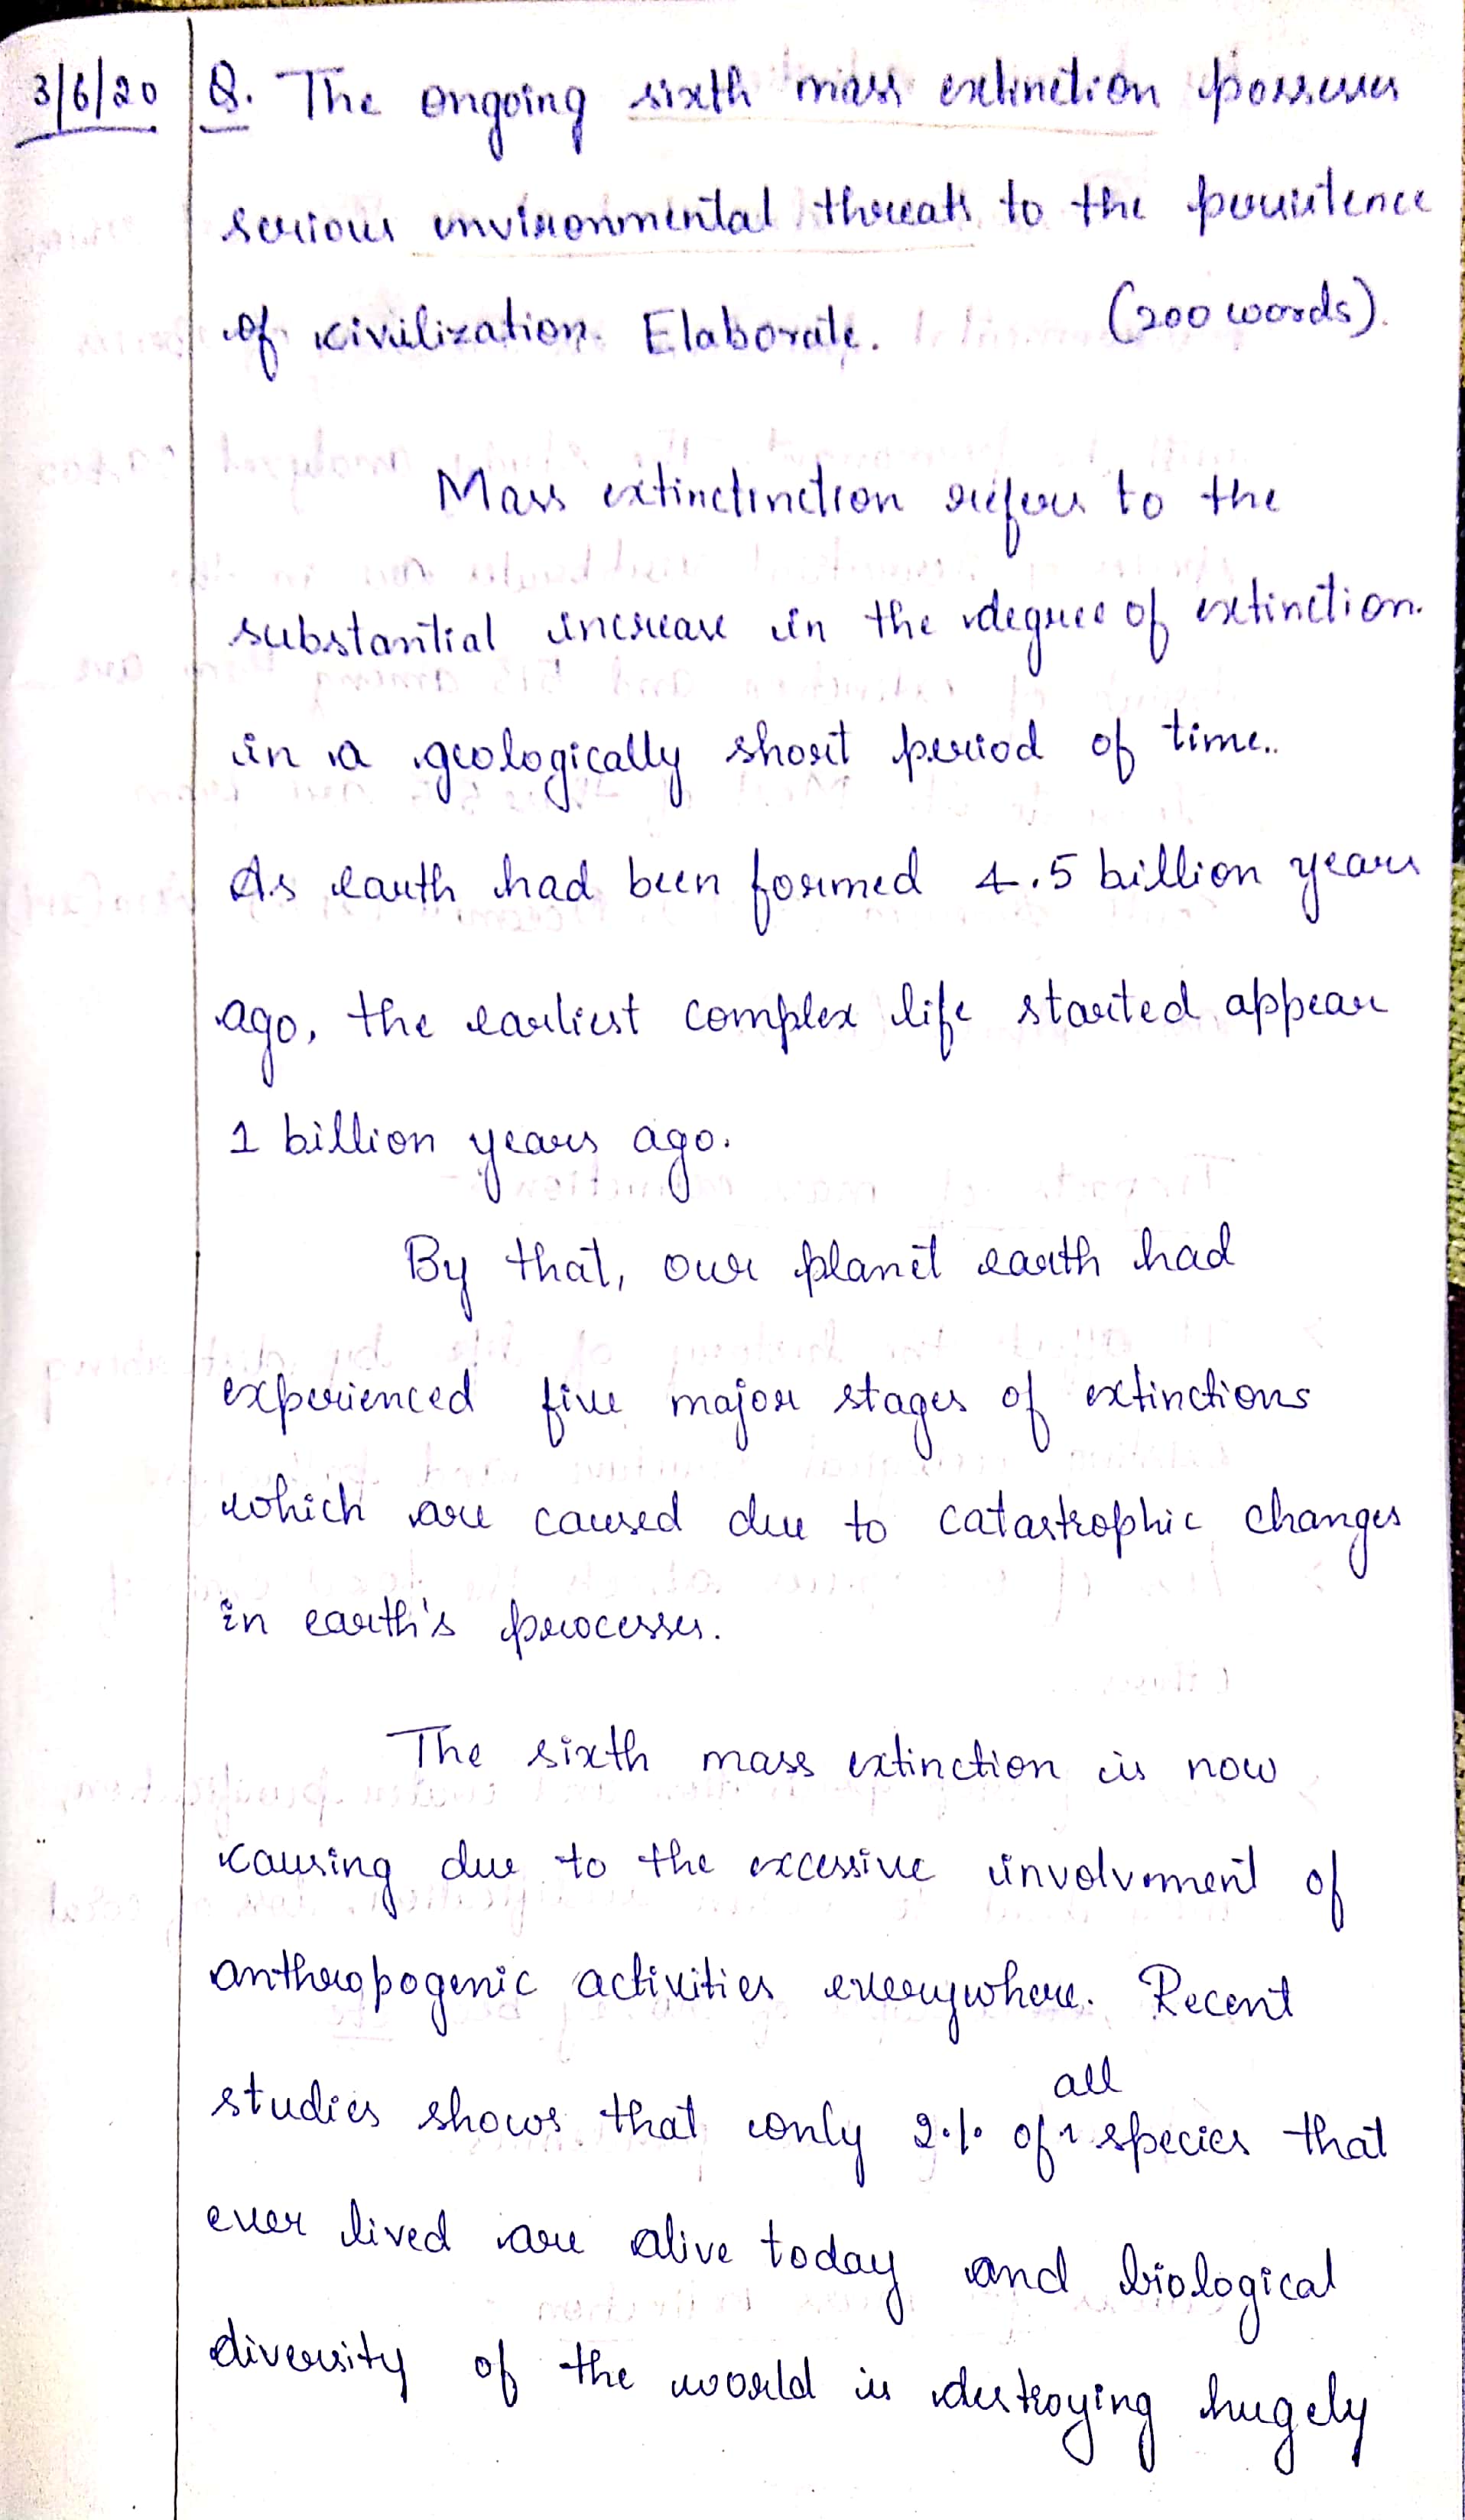 3/6/20 Q. The ongoing sixth mass extinction possesses
serious environmental threats to the persistence
of civilization. Elaborate. (200 words).
Mass extinctinction refers to the
substantial increase in the degree of extinction.
in a geologically short period of time..
As earth had been formed 4.5 billion years
ago, the earliest complex life started appear
1 billion years ago.
By that, our planet earth had
experienced five major stages of extinctions
which are caused due to catastrophic changes
in earth's processes.
The sixth mass extinction is now
causing due to the excessive involvement of
anthropogenic activities everywhere. Recent
all
studies shows that only 2% of species that
ever lived are alive today and biological
diversity of the world is destroying hugely